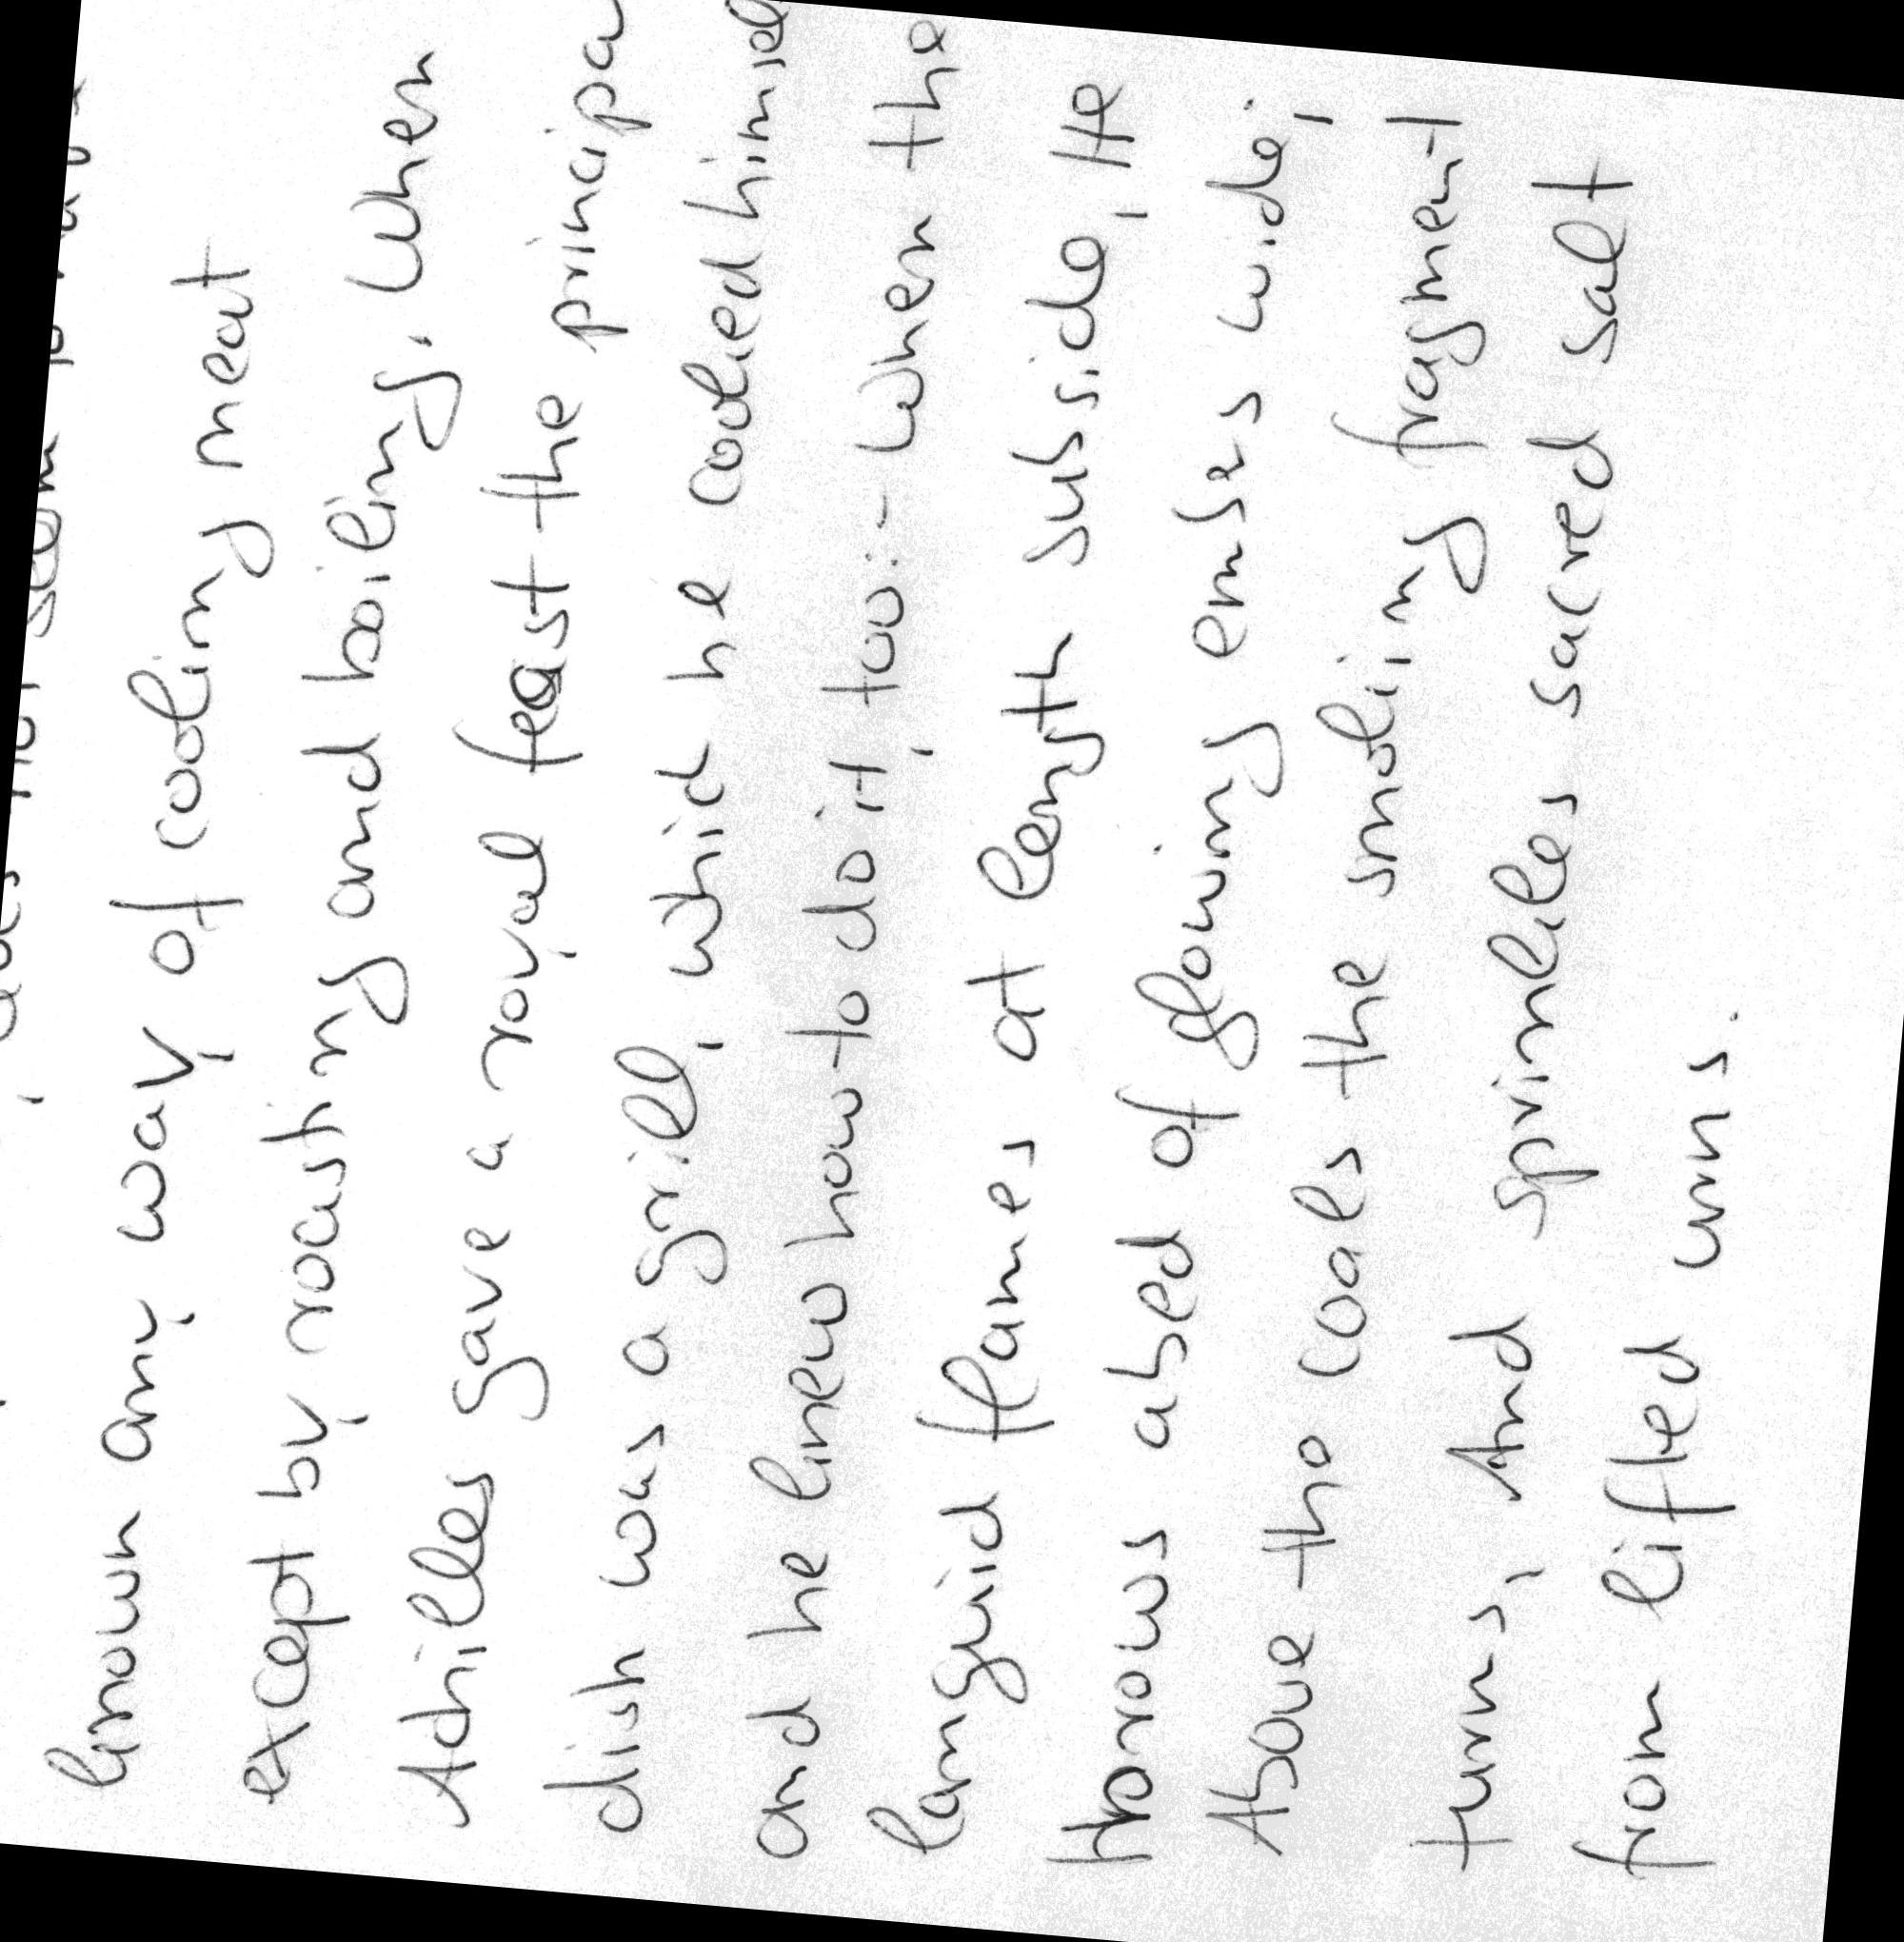 does not seem to have
known any way of cooking meat
except by roasting and boiling. When
Achilles gave a royal feast the principa
dish was a grill, which he cooked himsel
and he knew how to do it, too:- When the
languid flames at length subside, He
throws a bed of glowing embers wide,
Above the coals the smoking fragment
turns, And sprinkles sacred salt
from lifted urns.